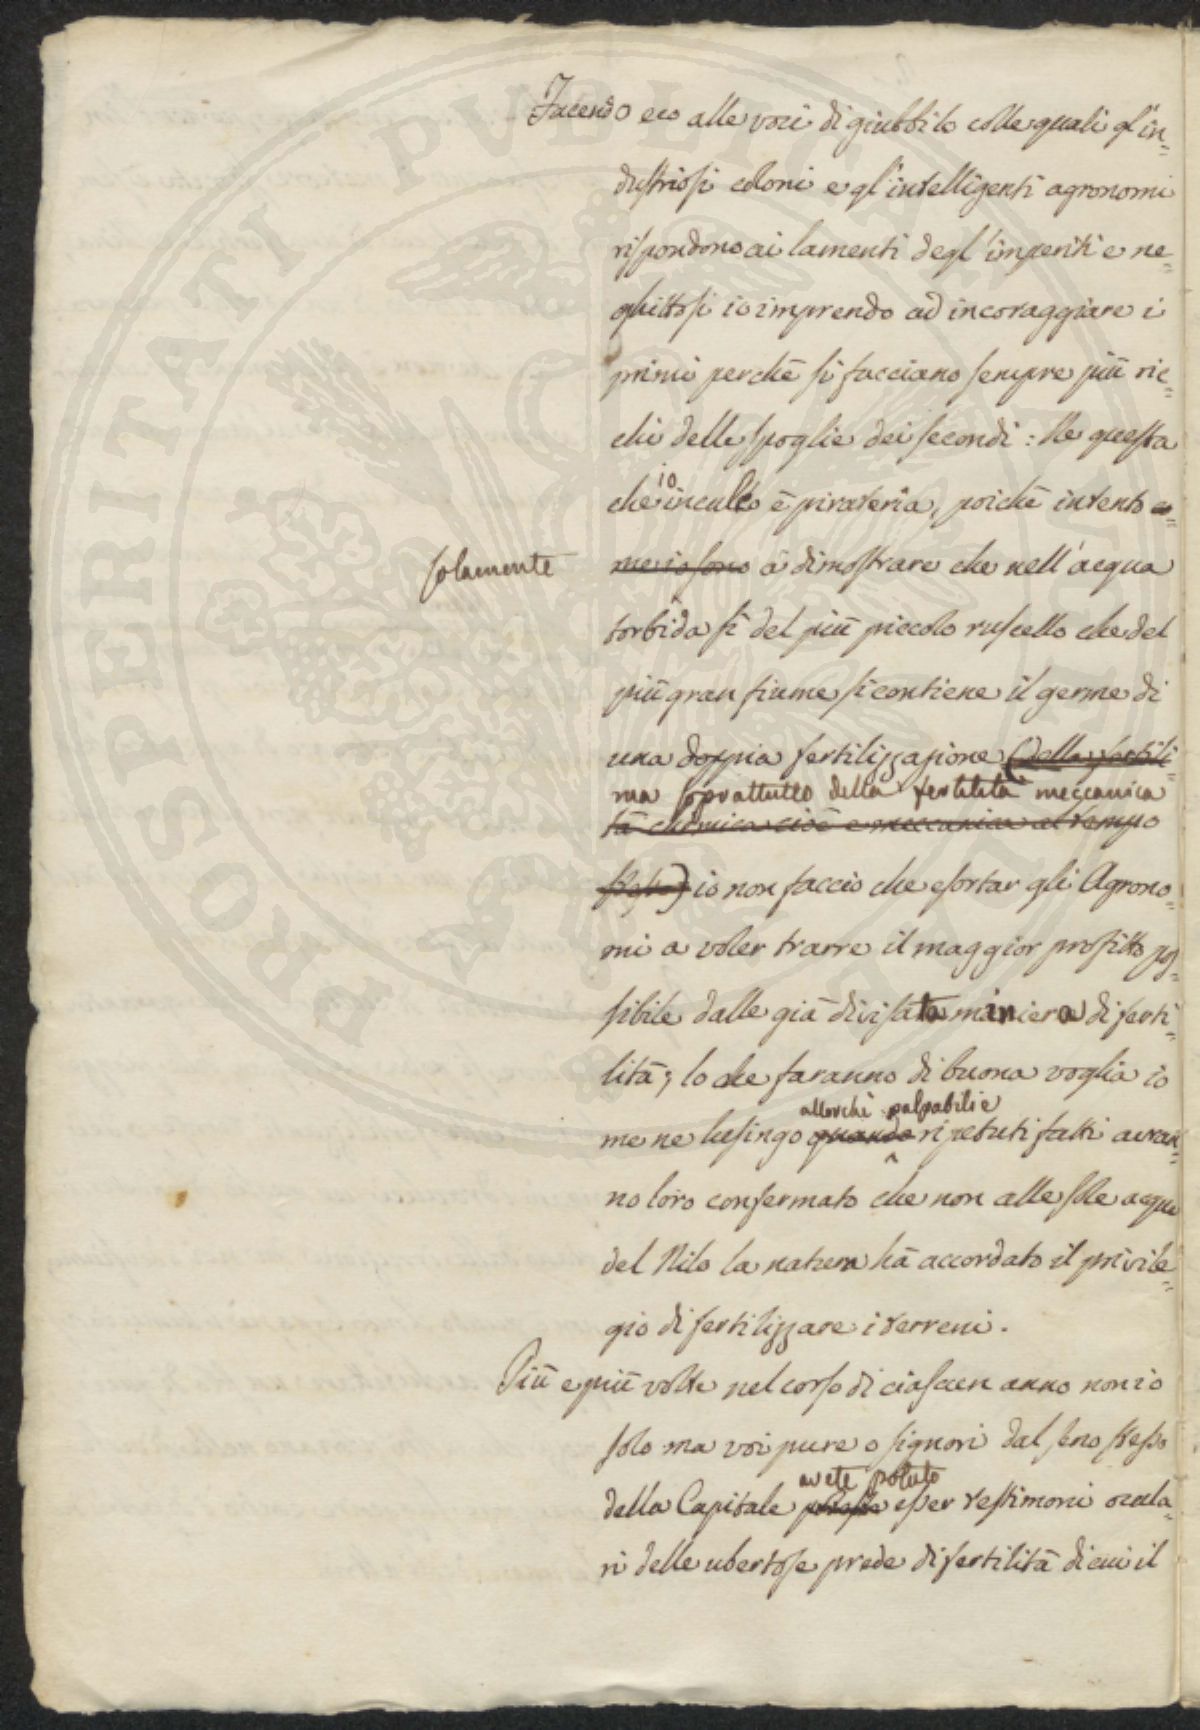 Facendo eco alle voci di giubbilo colle quali gl'in=
dustriosi coloni e gl'intelligenti agronomi
rispondono ai lamenti degl'imperiti e ne=
ghittosi io imprendo ad incoraggiare i
primi perchè si facciano sempre più ric=
chi delle spoglie dei secondi: Ne questa
io
che inculco è pirateria, poichè intento co=
solamente
me io sono a dimostrare che nell'acqua
torbida sì del più piccolo ruscello che del
più gran fiume si contiene il germe di
una doppia fertilizzazione (della fertili=
ma soprattutto della fertilità meccanica
tà chimica cioè e meccanica al tempo
stesso) io non faccio che esortar gli Agrono=
mi a voler trarre il maggior profitto pos=
sibile dalle già divisata miniera di ferti=
lità; lo che faranno di buona voglia io
allorchè palpabili e
me ne lusingo quando ripetuti fatti avran=
no loro confermato che non alle sole acque
del Nilo la natura hà accordato il privile=
gio di fertilizzare i terreni.
Più e più volte nel corso di ciascun anno non io
solo ma voi pure o signori dal seno stesso
avete potuto
della Capitale esser testimoni ocula=
ri delle ubertose prede di fertilità di cui il
PROSPERITATI PUBLICAE AUGENDAE